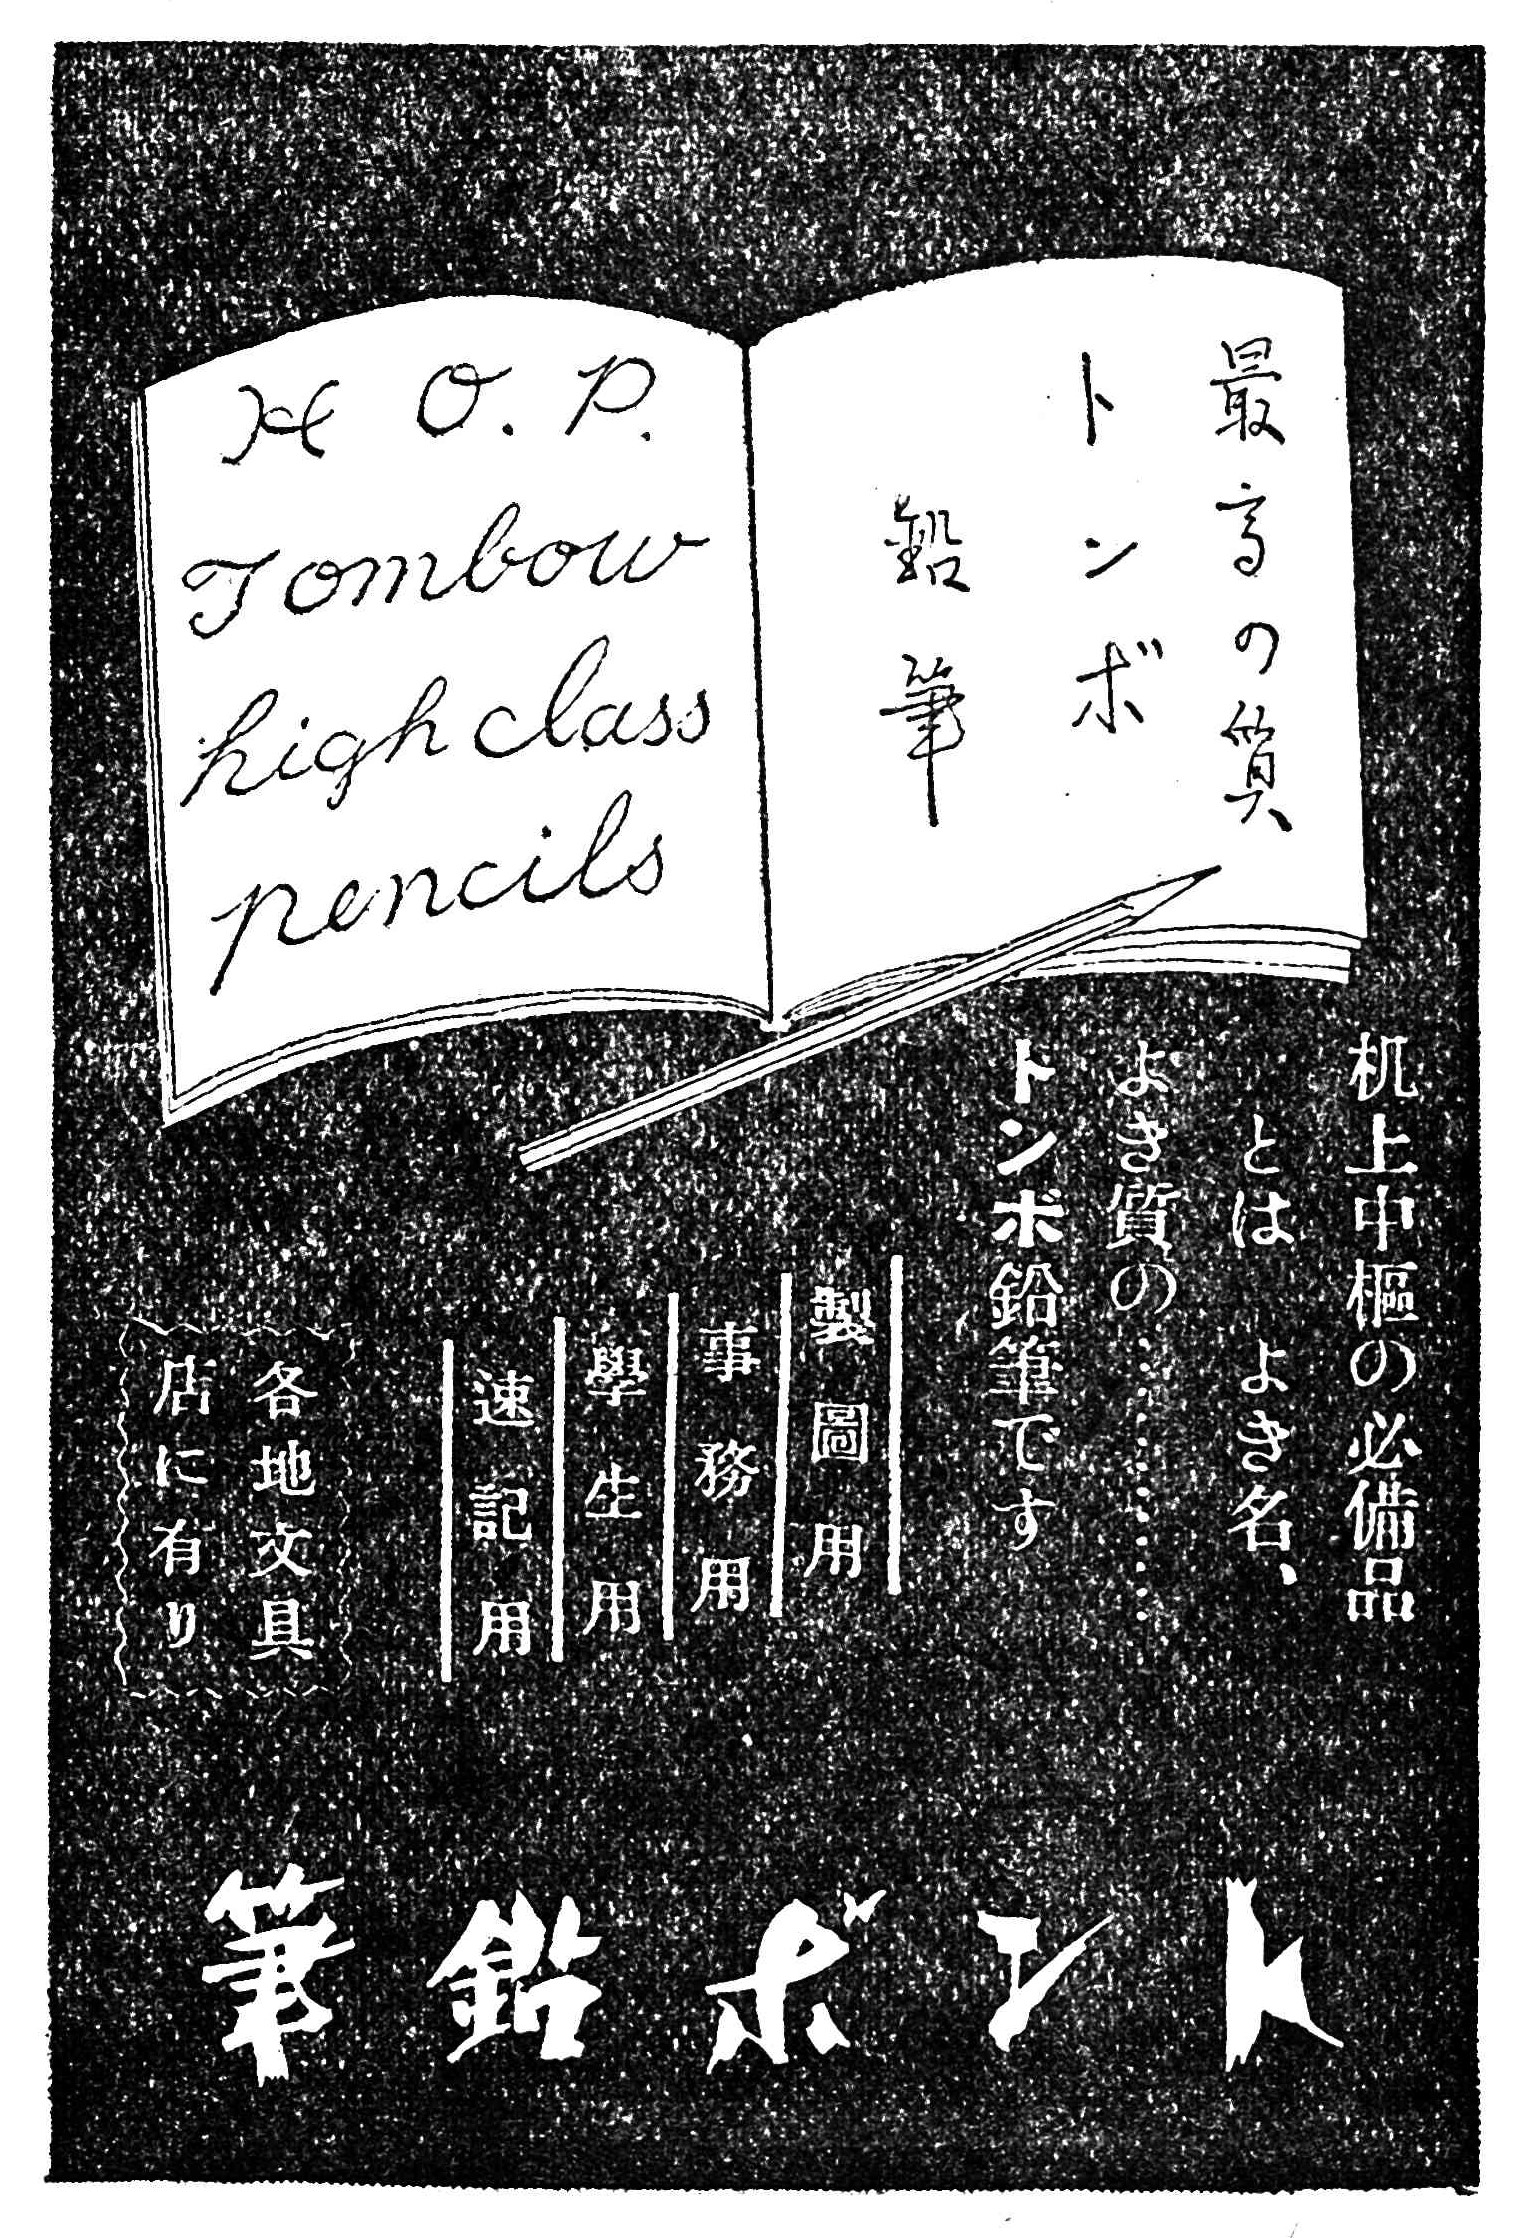 最高の質
トンボ
鉛筆
H O. P.
Tombow
high class
pencils
机上中樞の必備品
とは よき名、
よき質の…………
トンボ鉛筆です
製圖用
事務用
學生用
速記用
各地文具
店に有り
筆鉛ボント